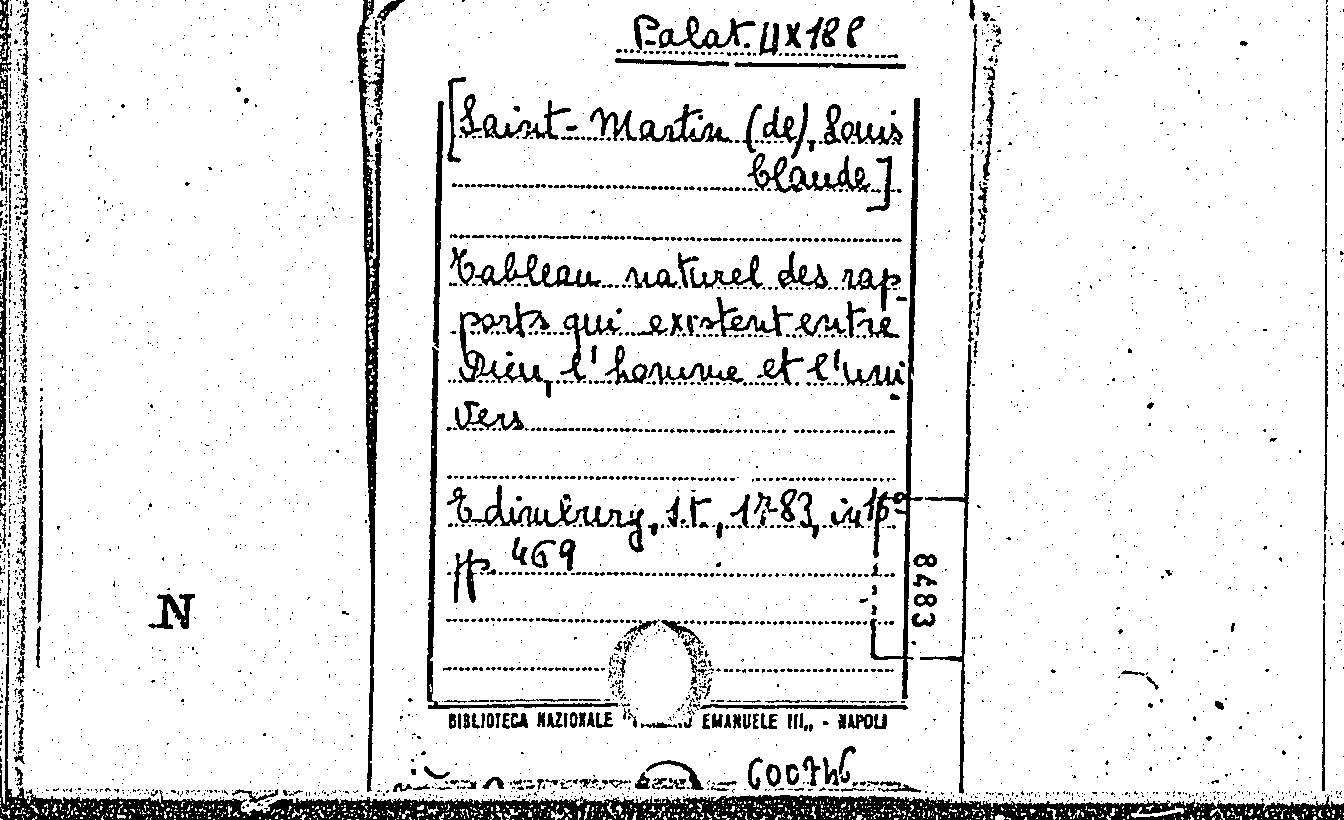 Palat.
[Saint-Martin (de), Louis
Claude]
Tableau naturel des rap-
ports qui existent entre
Dieu, l'homme et l'uni-
vers
Edimburg, s.t., 1783, in 16º
pp.
8483
N
BIBLIOTECA NAZIONALE " EMANUELE III„ - NAPOLI